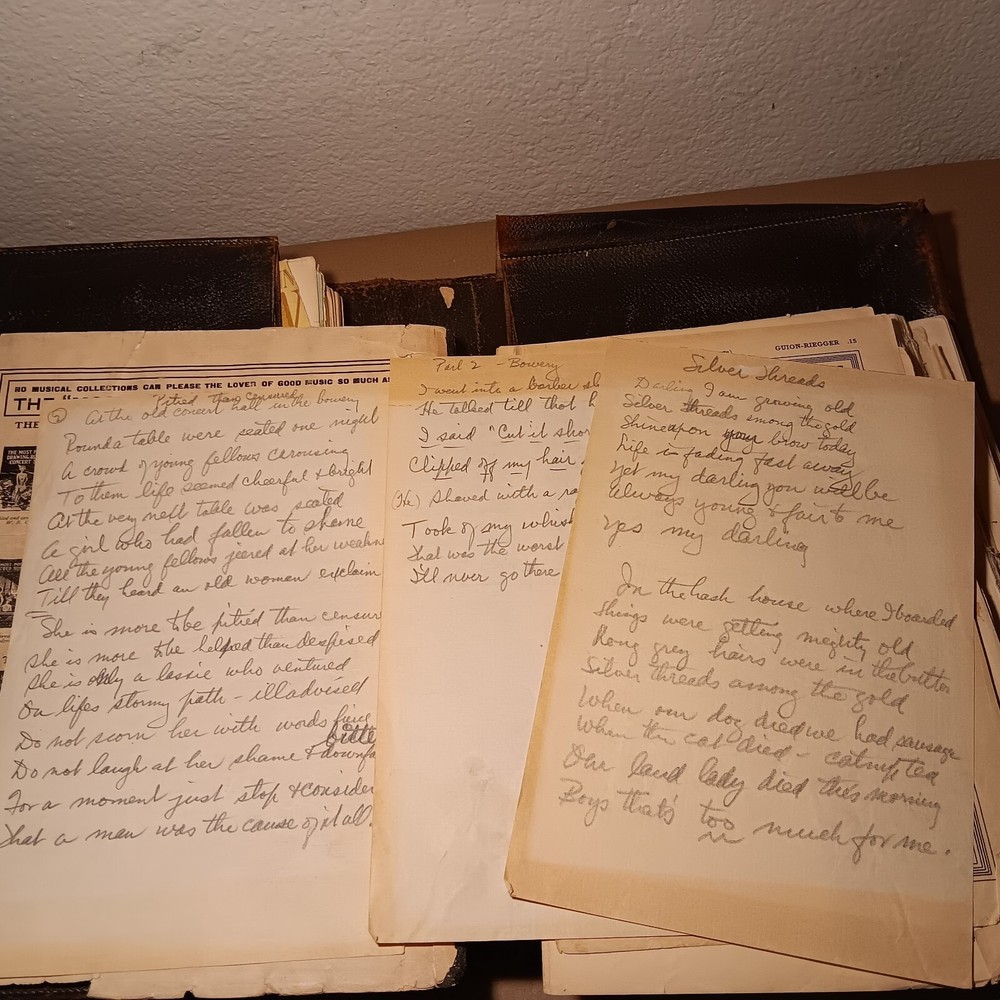 NO MUSICAL COLLECTIONS CAN PLEASE THE LOVER OF GOOD MUSIC SO MUCH A
THE
THE
② Pitied than censured
At the old concert hall in the bowery
Round a table were seated one night
A crowd of young fellows carousing
To them life seemed cheerful & bright
At the very next table was seated
A girl who had fallen to shame
All the young fellows jeered at her weakne
Till they heard an old woman exclaim
She is more to be pitied than censur
She is more to be helped than despised
She is only a lassie who ventured
On lifes stormy path - ill advised
Do not scorn her with words fierce
bitte
Do not laugh at her shame & downfa
For a moment just stop & consider
That a man was the cause of it all.
Part 2 - Bowery
I went into a barber sh
He talked till that h
I said "Cut it shor
Clipped off my hair
(He) Shaved with a ra
Took of my whisk
That was the worst
I'll never go there
GUION-RIEGGER 15
Silver Threads
Darling I am growing old
Silver threads among the gold
Shine upon your brow today
Life is fading fast away
Yet my darling you will be
Always young & fair to me
Yes my darling
In the hash house where I boarded
Things were getting meighty old
Long grey hairs were in the butter
Silver threads among the gold
When our dog died we had sausage
When the cat died - catnip tea
Our land lady died this morning
Boys that's too much for me.